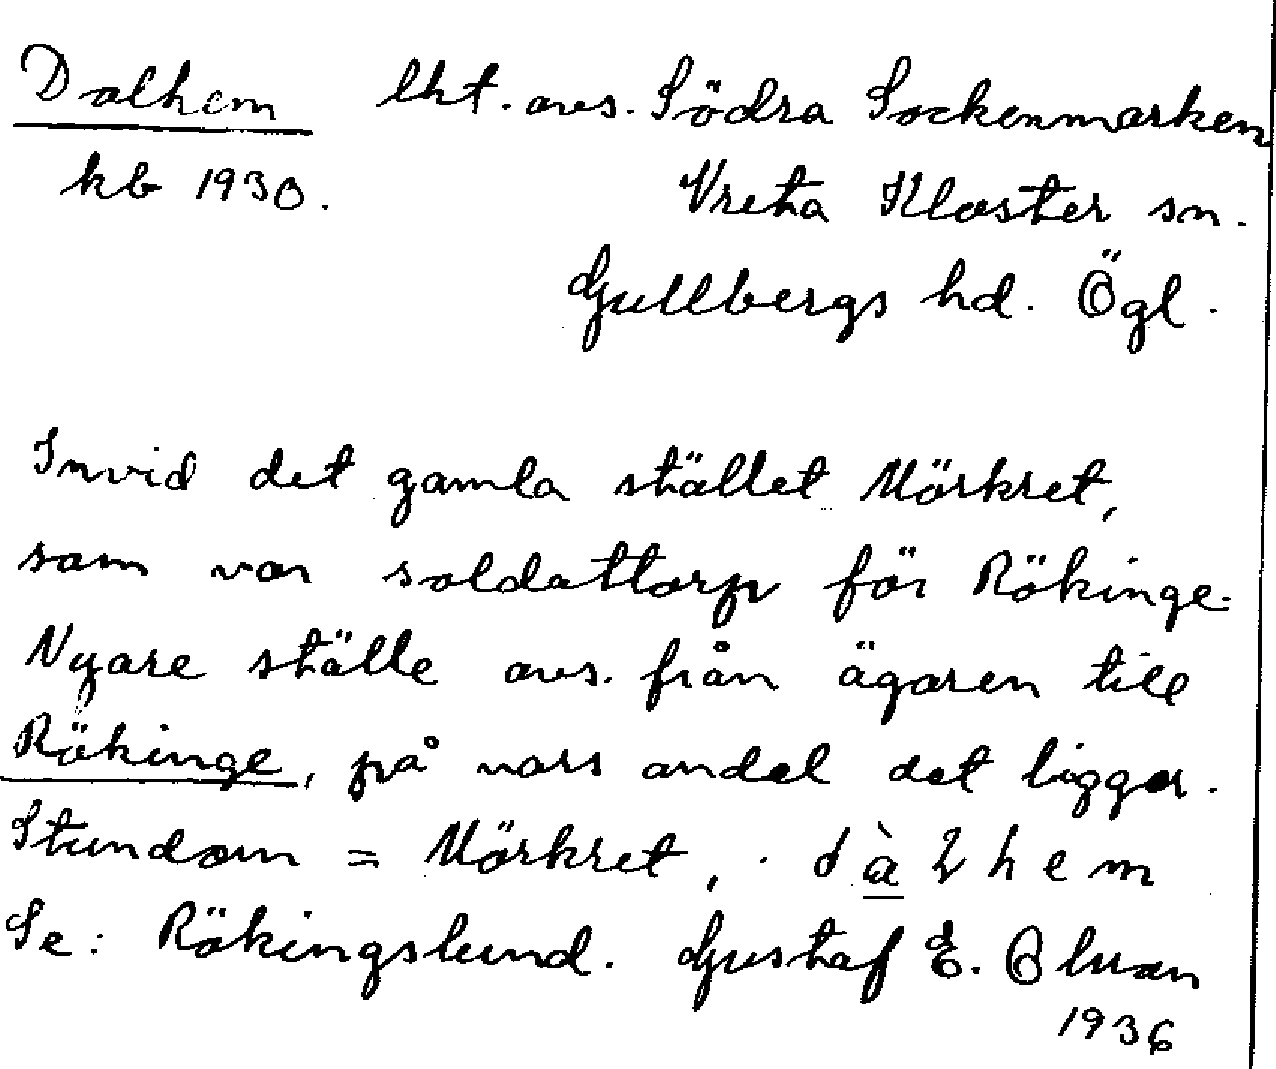 Dalhem lht. avs. Södra Sockenmarken
kb 1930. Vreta Kloster sn.
Gullbergs hd. Ögl.
Invid det gamla stället Mörkret,
som var soldattorp för Rökinge.
Nyare ställe avs. från ägaren till
Rökinge, på vars andel det ligger.
Stundom = Mörkret, . dàlhem
Se: Rökingslund. Gustaf E.
1936